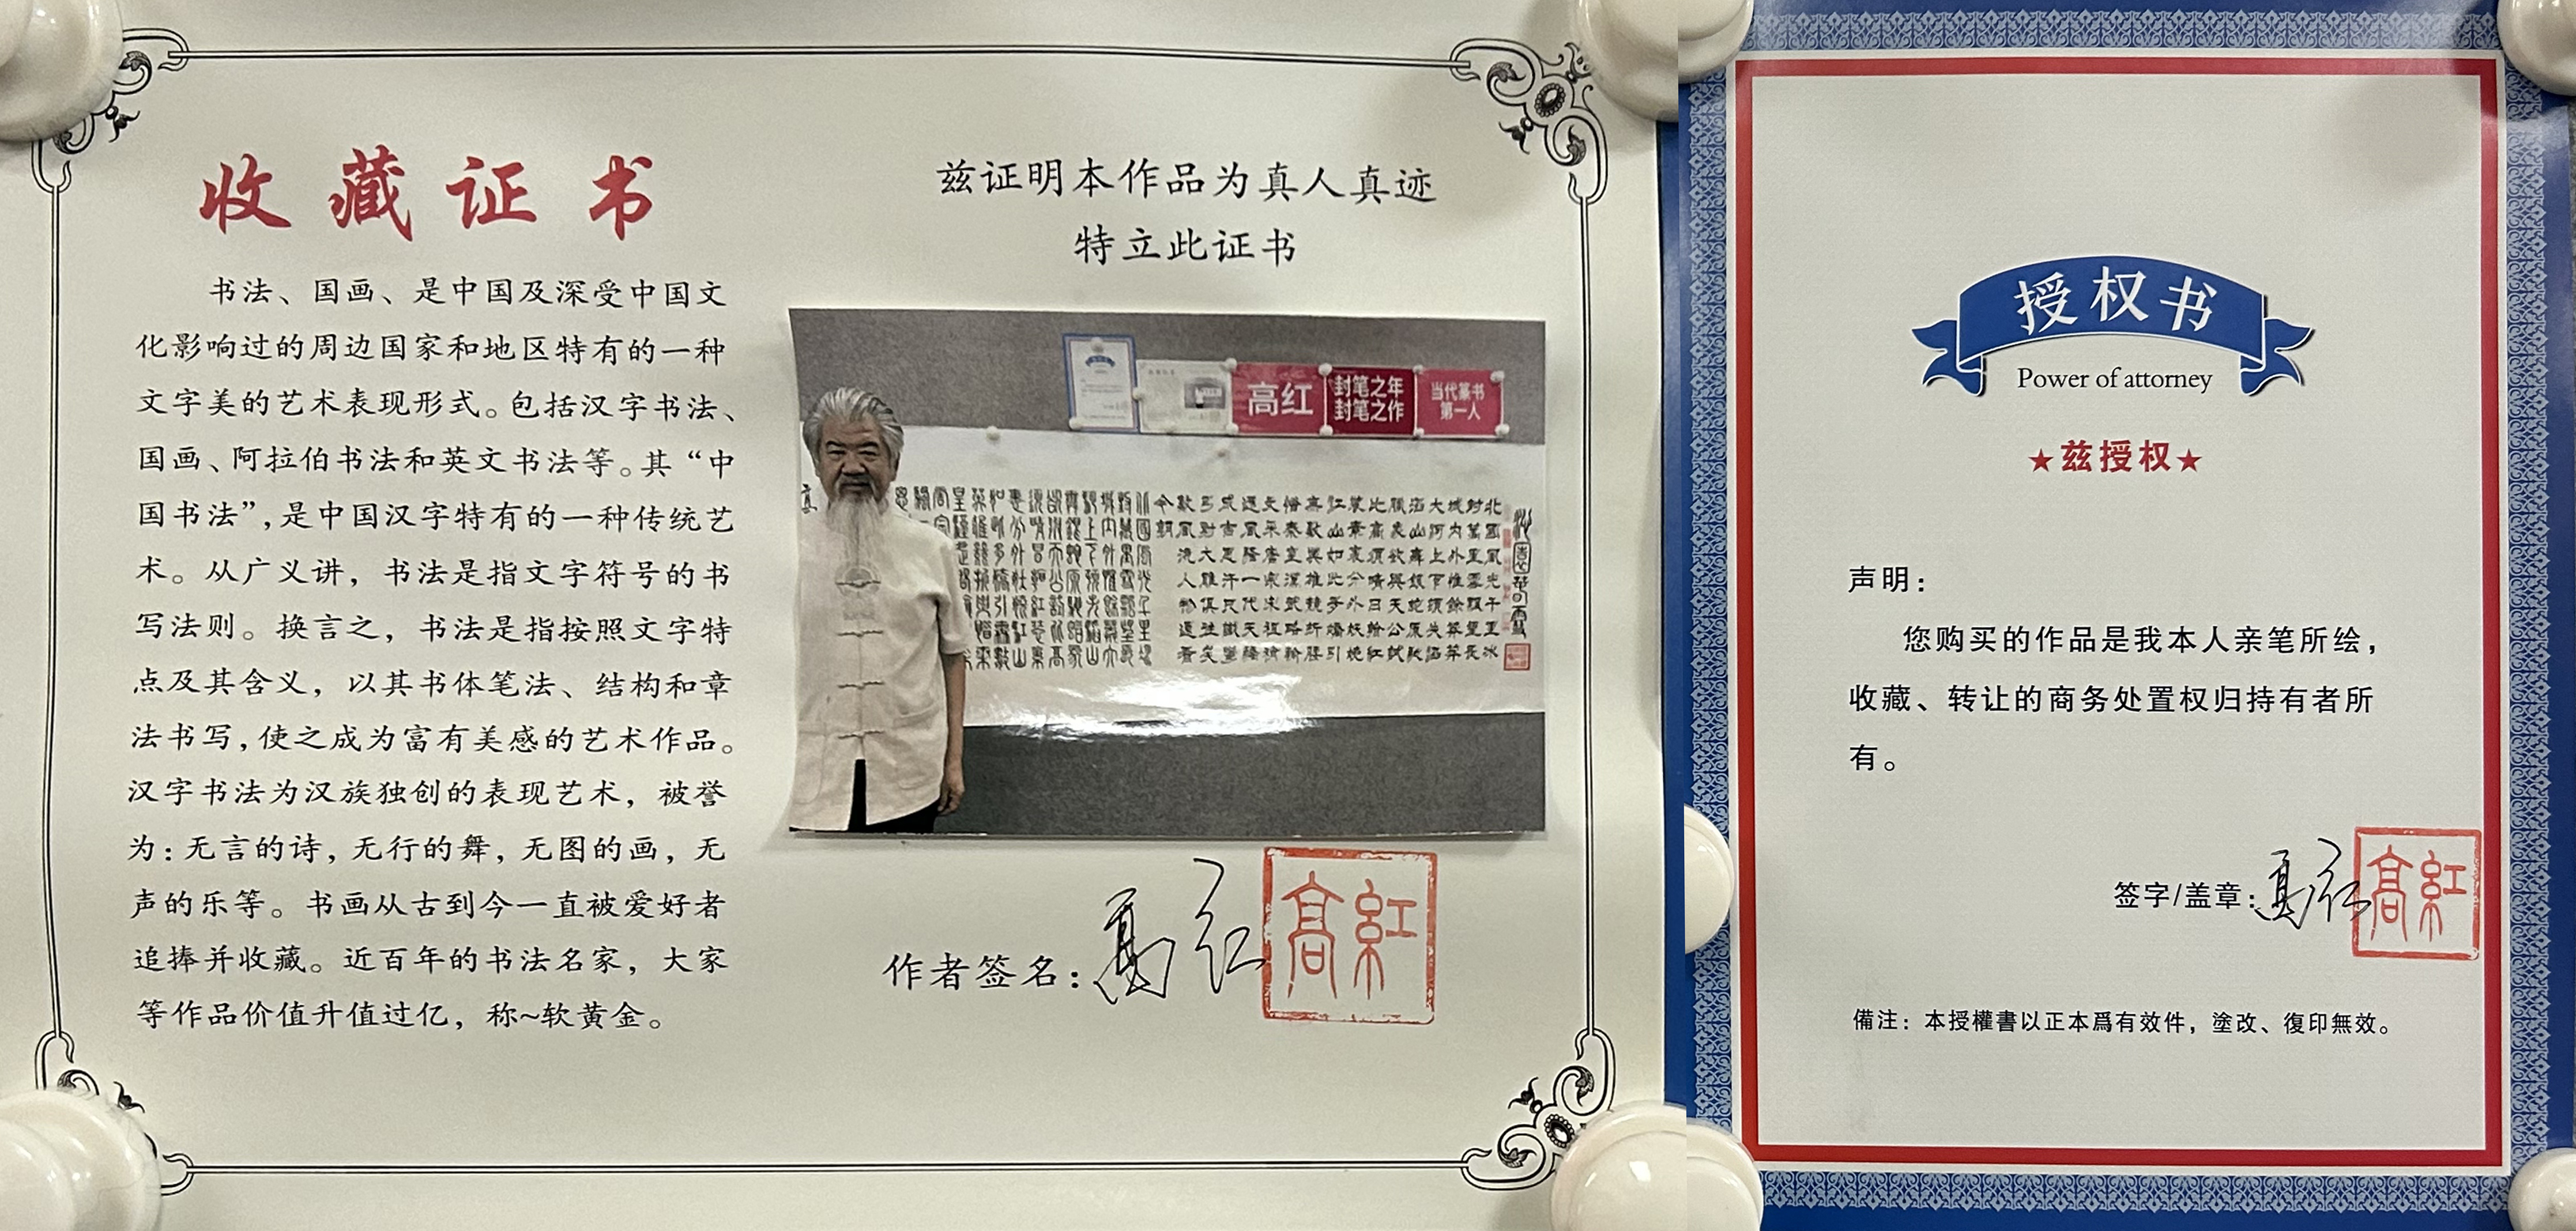 收藏证书
书法、国画、是中国及深受中国文
化影响过的周边国家和地区特有的一种
文字美的艺术表现形式。包括汉字书法、
国画、阿拉伯书法和英文书法等。其“中
国书法”，是中国汉字特有的一种传统艺
术。从广义讲，书法是指文字符号的书
写法则。换言之，书法是指按照文字特
点及其含义，以其书体笔法、结构和章
法书写，使之成为富有美感的艺术作品。
汉字书法为汉族独创的表现艺术，被誉
为：无言的诗，无行的舞，无图的画，无
声的乐等。书画从古到今一直被爱好者
追捧并收藏。近百年的书法名家，大家
等作品价值升值过亿，称~软黄金。
兹证明本作品为真人真迹
特立此证书
高红
封笔之年
封笔之作
当代篆书
第一人
作者签名：高红
高紅
授权书
Power of attorney
★兹授权★
声明：
您购买的作品是我本人亲笔所绘，
收藏、转让的商务处置权归持有者所
有。
签字/盖章：高红
高紅
備注：本授權書以正本爲有效件，塗改、復印無效。